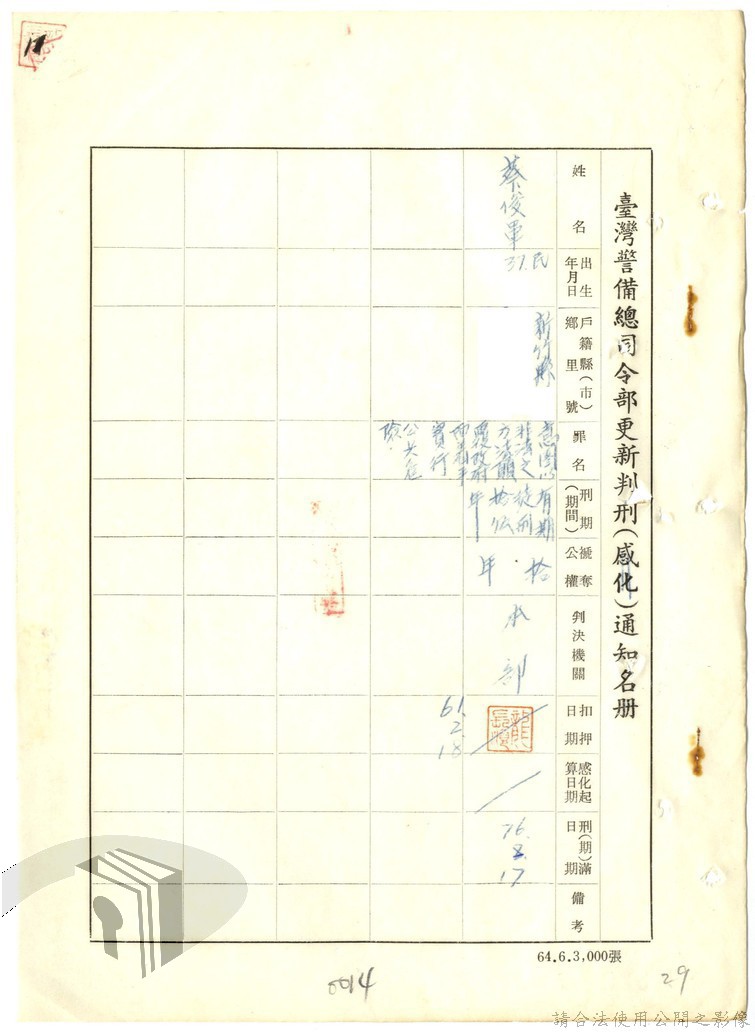 臺灣警備總司令部更新判刑(感化)通知名册
姓名
出生年月日
戶籍縣(市)鄉里號
罪名
刑期(期間)
褫奪公權
判決機關
扣押日期
感化起算日期
刑(期)滿日期
備考
蔡俊軍
37.民
新竹縣
意圖以
非法之
方法顛
覆政府
而着手
實行
公共危
險
有期
徒刑
拾伍
年
拾
年
本部
61.
2.
18
76.
2.
17
64.6.3,000張
0014
29
請合法使用公開之影像